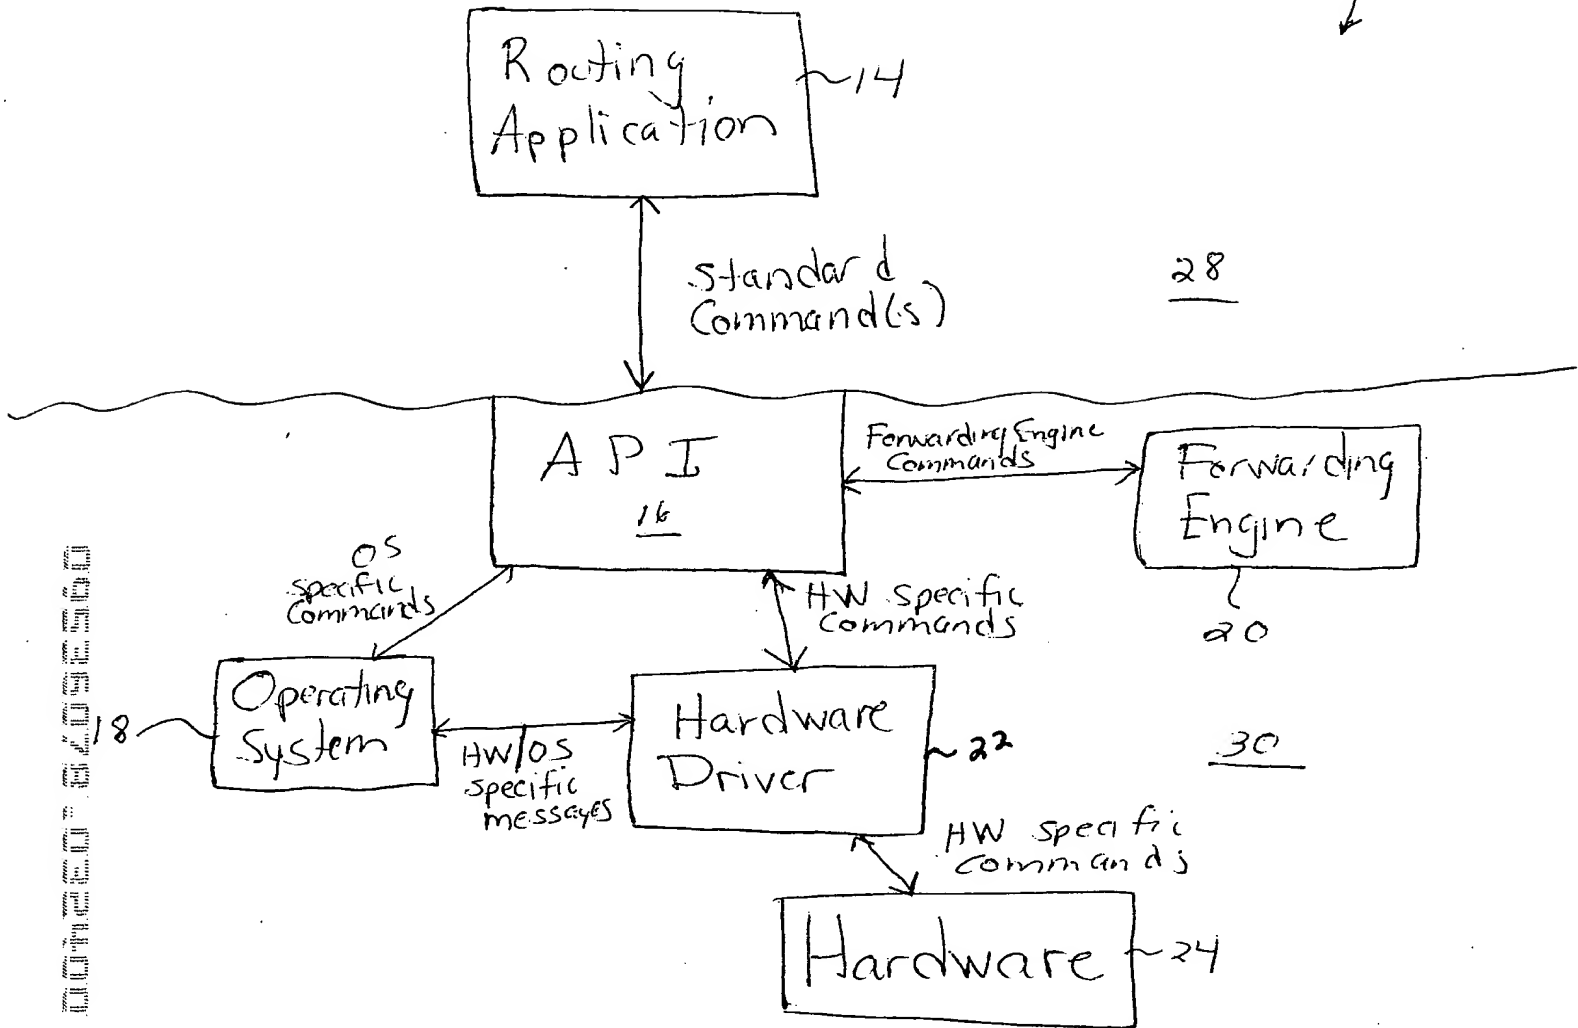 Routing
Application
14
Standard
Command(s)
28
API
16
Forwarding Engine
Commands
Forwarding
Engine
20
OS
specific
Commands
HW specific
Commands
Operating
System
18
HW/OS
specific
messages
Hardware
Driver
22
30
HW specific
Commands
Hardware
24